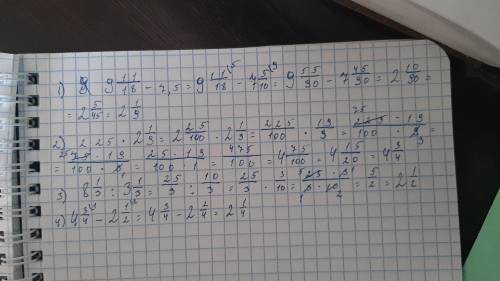 1) 9 11/18 - 7,5 = 9 11/18 - 7 5/10 = 9 55/90 - 7 45/90 = 2 10/90 =
= 2 5/45 = 2 1/9
2) 2,25 · 2 1/9 = 2 25/100 · 2 1/9 = 225/100 · 19/9 = 225 · 19/100 · 9 =
= 75 · 19/100 · 3 = 25 · 19/100 · 1 = 475/100 = 4 75/100 = 4 15/20 = 4 3/4
3) 8 1/3 : 3 1/3 = 25/3 : 10/3 = 25/3 · 3/10 = 25 · 3/3 · 10 = 5/2 = 2 1/2
4) 4 3/4 - 2 1/2 = 4 3/4 - 2 2/4 = 2 1/4